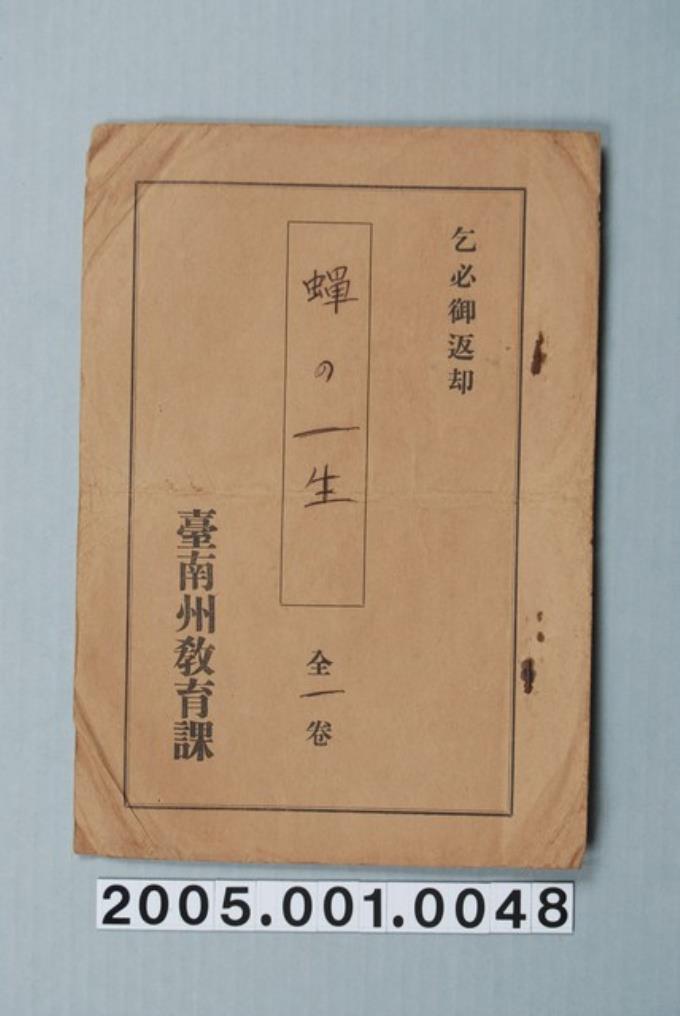 乞必御返却
蟬の一生
全一卷
臺南州敎育課
2005.001.0048